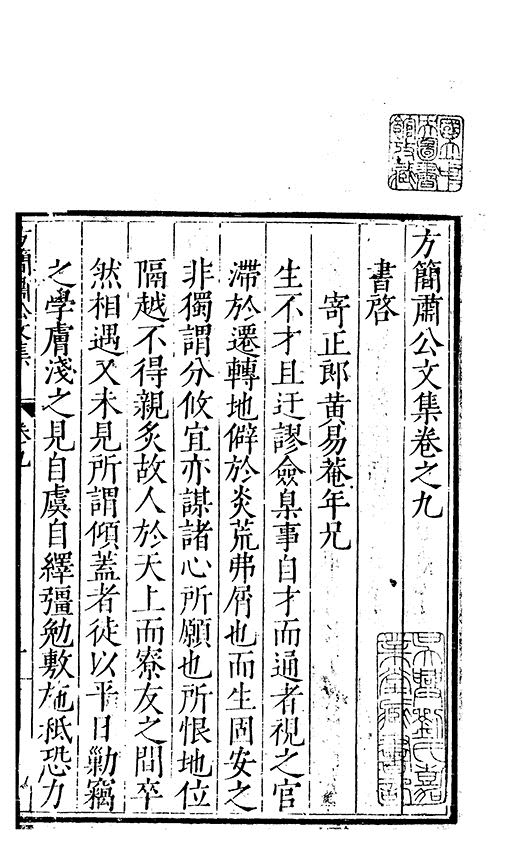 方簡肅公文集卷之九
書啓
寄正郎黄易菴年兄
生不才且迂謬僉臬事自才而通者視之官
滯於遷轉地僻於炎荒弗屑也而生固安之
非獨謂分攸宜亦謀諸心所願也所恨地位
隔越不得親炙故人於天上而寮友之間卒
然相遇又未見所謂傾蓋者徒以平日勦竊
之學膚淺之見自虞自繹彊勉敷施祗恐力
方簡肅公文集
卷九